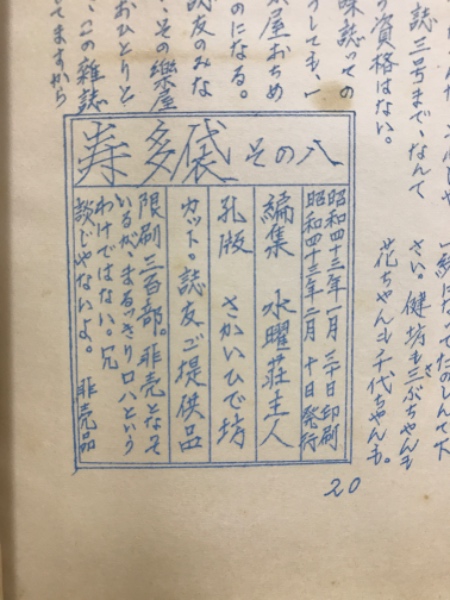 一緒になってたのしんで下
さい。健坊も三ぶちゃんも
花ちゃんも千代ちゃんも。
誌三号まで、なんて
の資格はない。
味誌っての
うしても、一
屋おちめ
のになる。
誌友のみな
、その楽屋
おひとりと
、この雑誌
てますから
寿多袋 その八
昭和四十三年一月 三十日印刷
昭和四十三年二月 十日発行
編集 水曜荘主人
孔版 さかいひで坊
カット。誌友ご提供品
限刷 三百部。非売となって
いるが、まるっきりロハという
わけではない。冗
談じゃないよ。 非売品
20